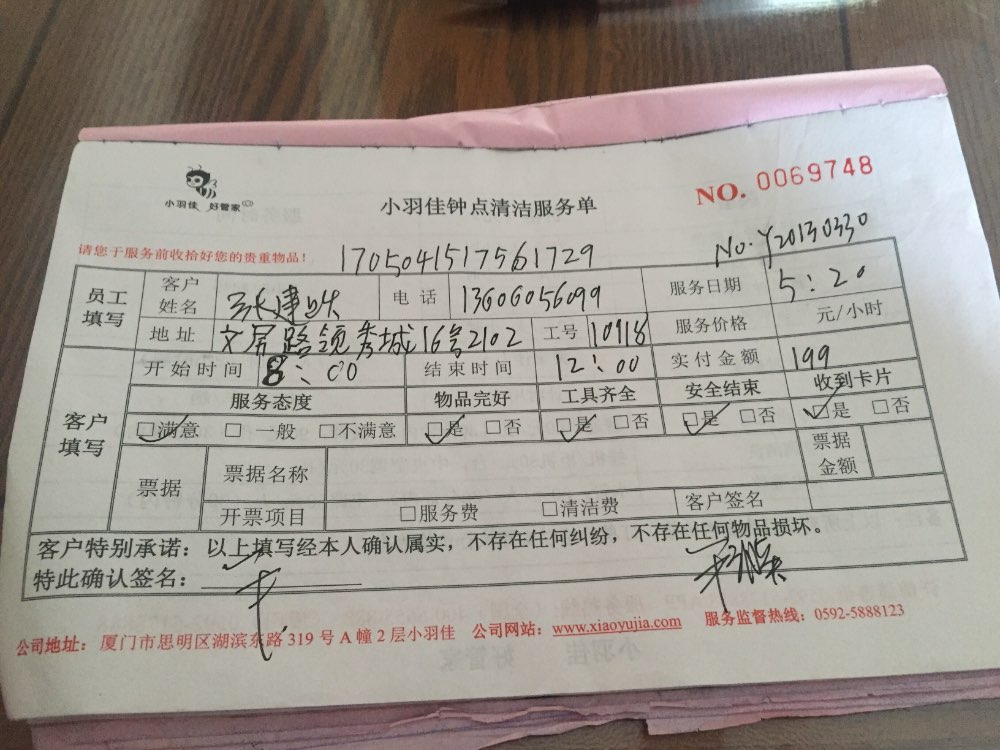 小羽佳 好管家
小羽佳钟点清洁服务单
NO. 0069748
请您于服务前收拾好您的贵重物品!
1705041517561729
No.Y20130330
员工填写 客户姓名 电话 13606056099 服务日期 5:20
地址 文屏路领秀城16号2102 工号 10918 服务价格 元/小时
客户填写 开始时间 8:00 结束时间 12:00 实付金额 199
服务态度 物品完好 工具齐全 安全结束 收到卡片
☑满意 □一般 □不满意 ☑是 □否 ☑是 □否 ☑是 □否 ☑是 □否
票据 票据名称 票据金额
开票项目 □服务费 □清洁费 客户签名
客户特别承诺:以上填写经本人确认属实,不存在任何纠纷,不存在任何物品损坏。
特此确认签名:
公司地址:厦门市思明区湖滨东路 319 号 A 幢 2 层小羽佳 公司网站:www.xiaoyujia.com 服务监督热线:0592-5888123